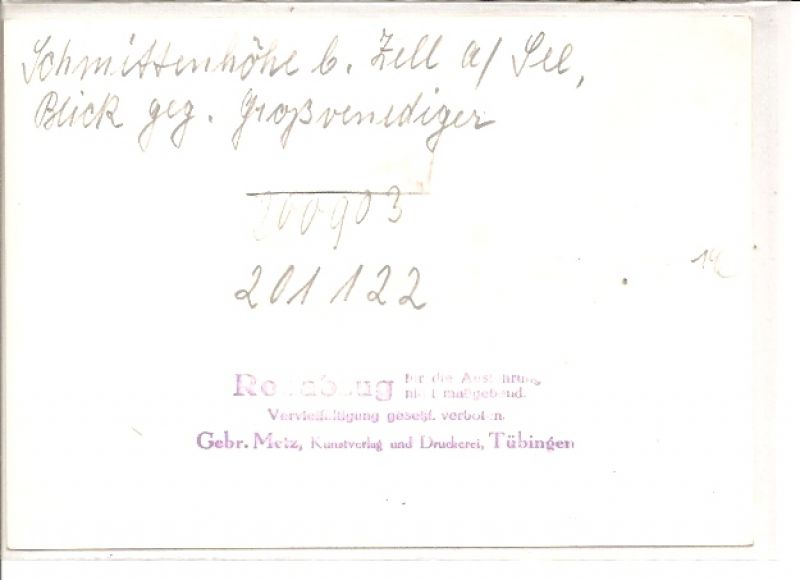 Schmittenhöhe b. Zell a/ See,
Blick geg. Großvenediger
200903
201122
für die Ausführung
nicht maßgebend.
Vervielfältigung gesetzl. verboten.
Gebr. Metz, Kunstverlag und Druckerei, Tübingen